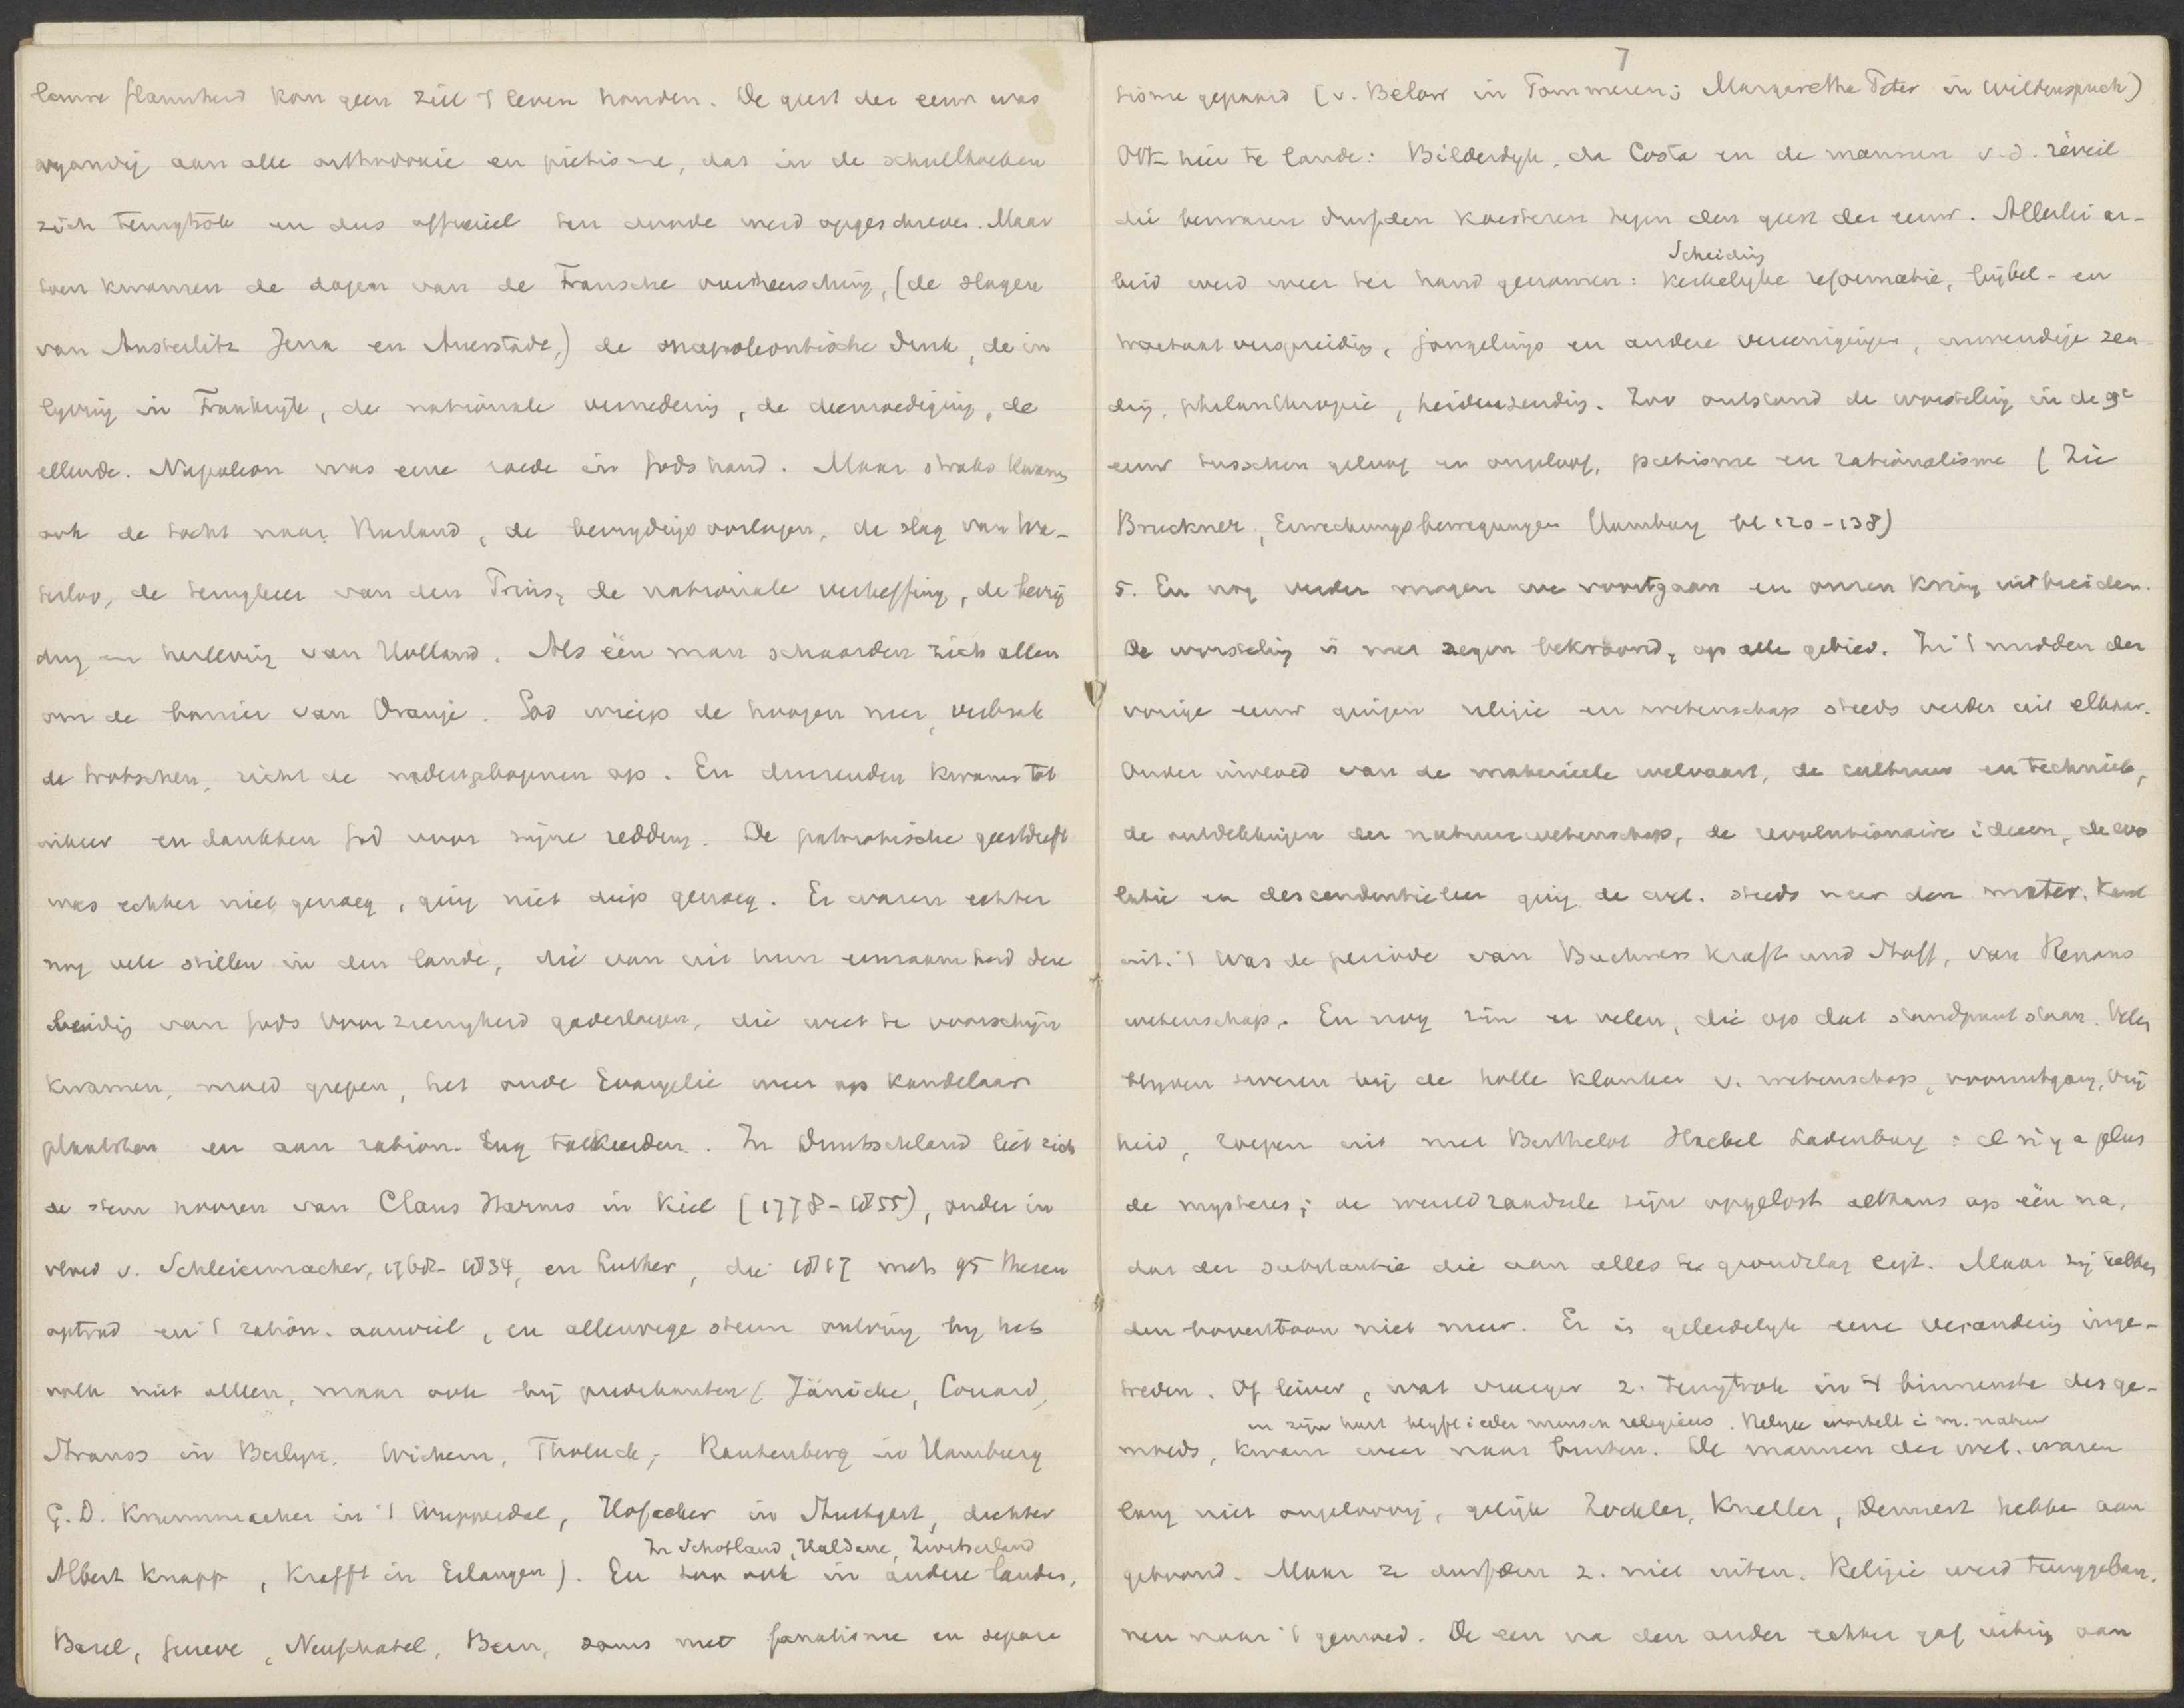 lauwe flauwheid kan geen ziel 't leven houden. De geest der eeuw was
vyandig aan alle orthodoxie en piëtisme, dat in de schuilhoeken
zich terugtrok en dus officieel ten doode werd opgeschreven. Maar
toen kwamen de dagen van de Fransche overheersching, (de slagen
van Austerlitz Jena en Auerstädt,) de napoleontische druk, de in
lyving in Frankryk, de nationale vernedering, de deemoediging, de
ellende. Napoleon was eene roede in Gods hand. Maar straks kwam
ook de tocht naar Rusland, de bevrydingsoorlogen, de slag van Wa-
terloo, de terugkeer van den Prins, de nationale verheffing, de bevrij
ding en herleving van Holland. Als één man schaarden zich allen
om de banier van Oranje. God wierp de hoogen neer, verbrak
de trotschen, richt de nedergebogenen op. En duizenden kwamen tot
inkeer en dankten God voor zijne redding. De patriotische geestdrift
was echter niet genoeg, ging niet diep genoeg. Er waren echter
nog vele stillen in den lande, die van uit hun eenzaamheid deze
leiding van Gods voorzienigheid gadesloegen, die weer te voorschijn
kwamen, moed grepen, het oude Evangelie weer op kandelaar
plaatsten en aan ration. rug toekeerden. In Duitschland liet zich
de stem hooren van Claus Harms in Kiel (1778-1855), onder in
vloed v. Schleiermacher, 1768-1834, en Luther, die 1817 met 95 theses
optrad en 't ration. aanviel, en allerwege steun ontving by het
volk niet alleen, maar ook bij predikanten (Jänicke, Couard,
Strauss in Berlyn, Wichern, Tholuck, Rautenberg in Hamburg
G. D. Krummacher in 't Wupperdal, Hofacker in Stuttgart, dichter
In Schotland, Haldane, Zwitserland
Albert Knapp, Krafft in Erlangen). En zoo ook in andere landen,
Basel, Geneve, Neufchatel, Bern, soms met fanatisme en separa
7
tisme gepaard (v. Below in Pommeren; Margaretha Peter in Wildenspuch)
Ook hier te lande: Bilderdyk, da Costa en de mannen v. d. réveil
die bezwaren durfden koesteren tegen den geest der eeuw. Allerlei ar-
Scheiding
beid werd weer ter hand genomen: kerkelyke reformatie, bijbel- en
tractaatverspreiding, jongelings en andere vereenigingen, inwendige zen-
ding, philanthropie, heidenzending. Zoo ontstond de worsteling in de 19e
eeuw tusschen geloof en ongeloof, piëtisme en rationalisme (Zie
Bruckner, Erweckungsbewegungen Hamburg bl 120-138)
5. En nog verder mogen we voortgaan en onzen kring uitbreiden.
De worsteling is met zegen bekroond, op alle gebied. In 't midden der
vorige eeuw gingen religie en wetenschap steeds verder uit elkaar.
Onder invloed van de materieele welvaart, de cultuur en techniek,
de ontdekkingen der natuurwetenschap, de revolutionaire ideeen, de evo
lutie en descendentieleer ging de wet. steeds meer den mater. kant
uit. 't Was de periode van Buchners Kraft und Stoff, van Renans
wetenschap. En nog zijn er velen, die op dat standpunt staan. Velen
blyven zweren bij de holle klanken v. wetenschap, vooruitgang, vrij
heid, roepen uit met Berthelot Haekel Ladenburg: il n'y a plus
de mysteres; de wereldraadsels zijn opgelost althans op één na,
dat der substantie die aan alles ten grondslag ligt. Maar zij hebben
den boventoon niet meer. Er is geleidelyk eene verandering inge-
treden. Of liever, wat vroeger z. terugtrok in 't binnenste des ge-
in zijn hart blyft ieder mensch religieus. Religie wortelt i. m. natuur
moeds, kwam weer naar buiten. De mannen der wet. waren
lang niet ongeloovig, gelijk Zöckler, Kneller, Dennert hebben aan
getoond. Maar ze durfden z. niet uiten. Religie werd teruggeban-
nen naar 't gemoed. De een na den ander echter gaf uiting aan